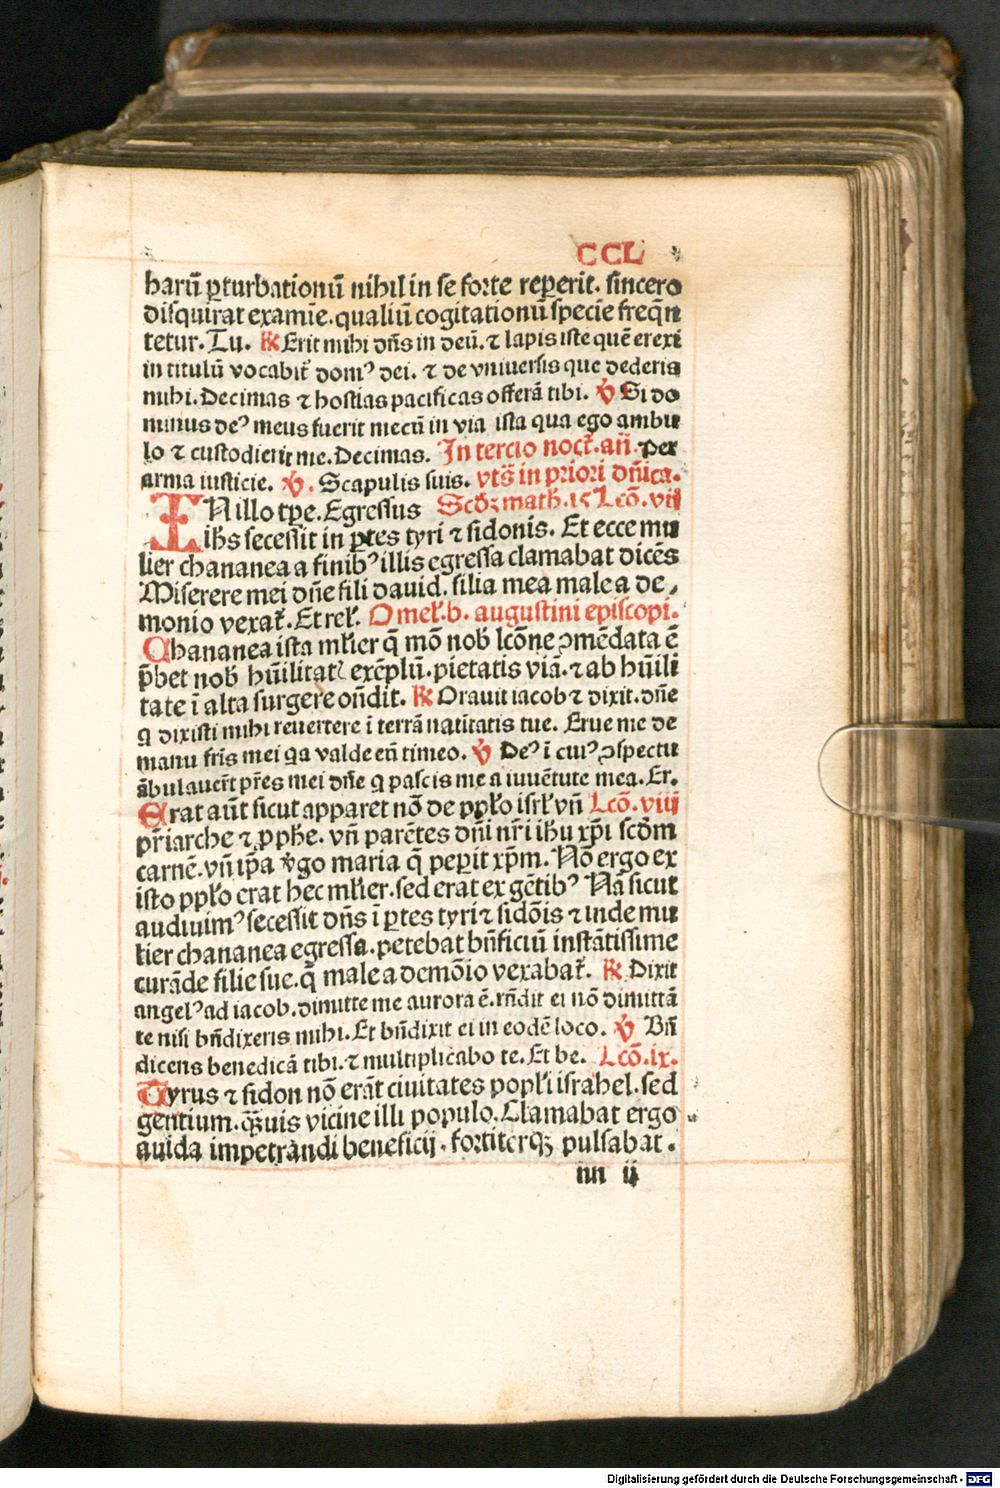 CCL
harū ꝑturbationū nihil in se forte reꝑerit. sincero
disquirat examīe. qualiū cogitationū specie freq̄n
tetur. Tu. ℟ Erit mihi dn̄s in deū. ⁊ lapis iste quē erexi
in titulū vocabit᷑ domꝰ dei. ⁊ de vniuersis que dederis
mihi. Decimas ⁊ hostias pacificas offerā tibi. ℣ Si do
minus deꝰ meus fuerit mecū in via ista qua ego ambu
lo ⁊ custodierit me. Decimas. In tercio noct᷑. an̄. Per
arma iusticie. ℣. Scapulis suis. vts̄ in priori dn̄ica.
IN illo tp̄e. Egressus Scd̄ꝫ math. 15 Lcō. vij
ih̄s secessit in ꝑtes tyri ⁊ sidonis. Et ecce mu
lier chananea a finibꝰ illis egressa clamabat dicēs
Miserere mei dn̄e fili dauid. filia mea male a de⸗
monio vexat᷑. Et rel̓. Omel̓. b. augustini episcopi.
Chananea ista ml̓ier q̄ mō nob̓ lcōne ꝯmēdata ē
p̄bet nob̓ hūilitatꝭ exēplū. pietatis viā. ⁊ ab hūili
tate ī alta surgere on̄dit. ℟ Orauit iacob ⁊ dixit. dn̄e
q dixisti mihi reuertere ī terrā natītatis tue. Erue me de
manu fr̄is mei qa valde eū timeo. ℣ Deꝰ ī cuiꝰ ꝯspectu
ābulauer̄t pr̄es mei dn̄e q pascis me a iuuētute mea. Er.
Erat aūt sicut apparet nō de pp̄lo isrl̓ vn̄ Lcō. viij
pr̄iarche ⁊ ꝓphe. vn̄ parētes dn̄i nr̄i ih̄u xp̄i scd̄m
carnē. vn̄ ip̄a v̓go maria q̄ peꝑit xp̄m. Nō ergo ex
isto pp̄lo erat hec ml̓ier. sed erat ex gētibꝰ Nā sicut
audiuimꝰ secessit dn̄s ī ꝑtes tyri ⁊ sidōis ⁊ inde mu
lier chananea egressa. petebat bn̄ficiū instātissime
curāde filie sue. q̄ male a demōio vexabat᷑. ℟ Dixit
angelꝰ ad iacob. dimitte me aurora ē. rn̄dit ei nō dimittā
te nisi bn̄dixeris mihi. Et bn̄dixit ei in eodē loco. ℣ Bn̄
dicens benedicā tibi. ⁊ multiplicabo te. Et be. Lcō. ix.
Tyrus ⁊ sidon nō erāt ciuitates popl̓i israhel. sed
gentium. qꝫ̄uis vicine illi populo. Clamabat ergo
auida impetrandi beneficij. fortiterqꝫ pulsabat.
iiii ij
Digitalisierung gefördert durch die Deutsche Forschungsgemeinschaft - DFG